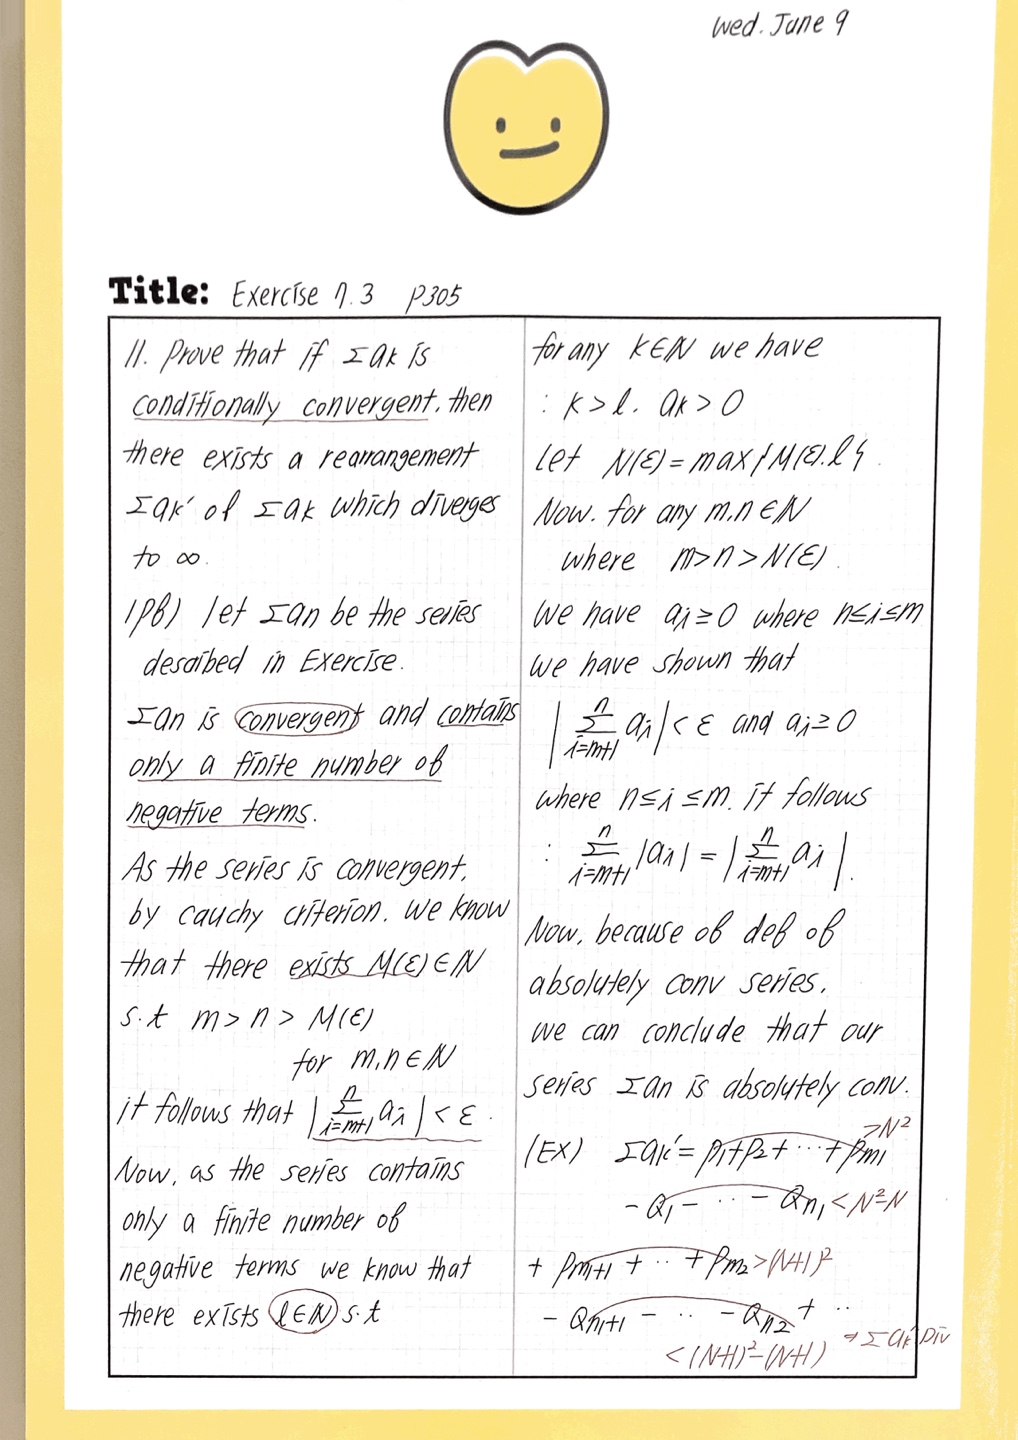 Wed. June 9
Title: Exercise 7.3 P305
11. Prove that if Σak is
conditionally convergent, then
there exists a rearrangement
Σak' of Σak which diverges
to ∞.
(pf) let Σan be the series
described in Exercise.
Σan is convergent and contains
only a finite number of
negative terms.
As the series is convergent,
by cauchy criterion. we know
that there exists M(ε)∈ℕ
s.t m>n>M(ε)
for m.n∈ℕ
it follows that |Σ_{i=m+1}^{n} ai|<ε.
Now, as the series contains
only a finite number of
negative terms we know that
there exists l∈ℕ s.t
for any k∈ℕ we have
: k>l. ak>0
Let N(ε)=max{M(ε).l}.
Now. for any m.n∈ℕ
where m>n>N(ε).
We have ai≥0 where n≤i≤m
we have shown that
|Σ_{i=m+1}^{n} ai|<ε and ai≥0
where n≤i≤m. it follows
: Σ_{i=m+1}^{n} |ai| = |Σ_{i=m+1}^{n} ai|.
Now, because of def of
absolutely conv series,
we can conclude that our
series Σan is absolutely conv.
(EX) Σak'= P1+P2+ ⋯ +Pm1 >N²
-Q1- ⋯ -Qn1 <N²-N
+ Pm1+1 + ⋯ +Pm2 >(N+1)²
- Qn1+1 - ⋯ -Qn2 + ⋯
<(N+1)²-(N+1) ⇒ Σak' Div